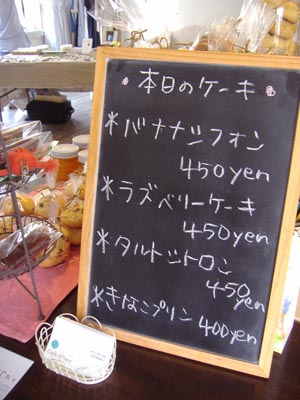 本日のケーキ
*バナナシフォン
450yen
*ラズベリーケーキ
450yen
*タルトシトロン
450
yen
*きなこプリン 400yen